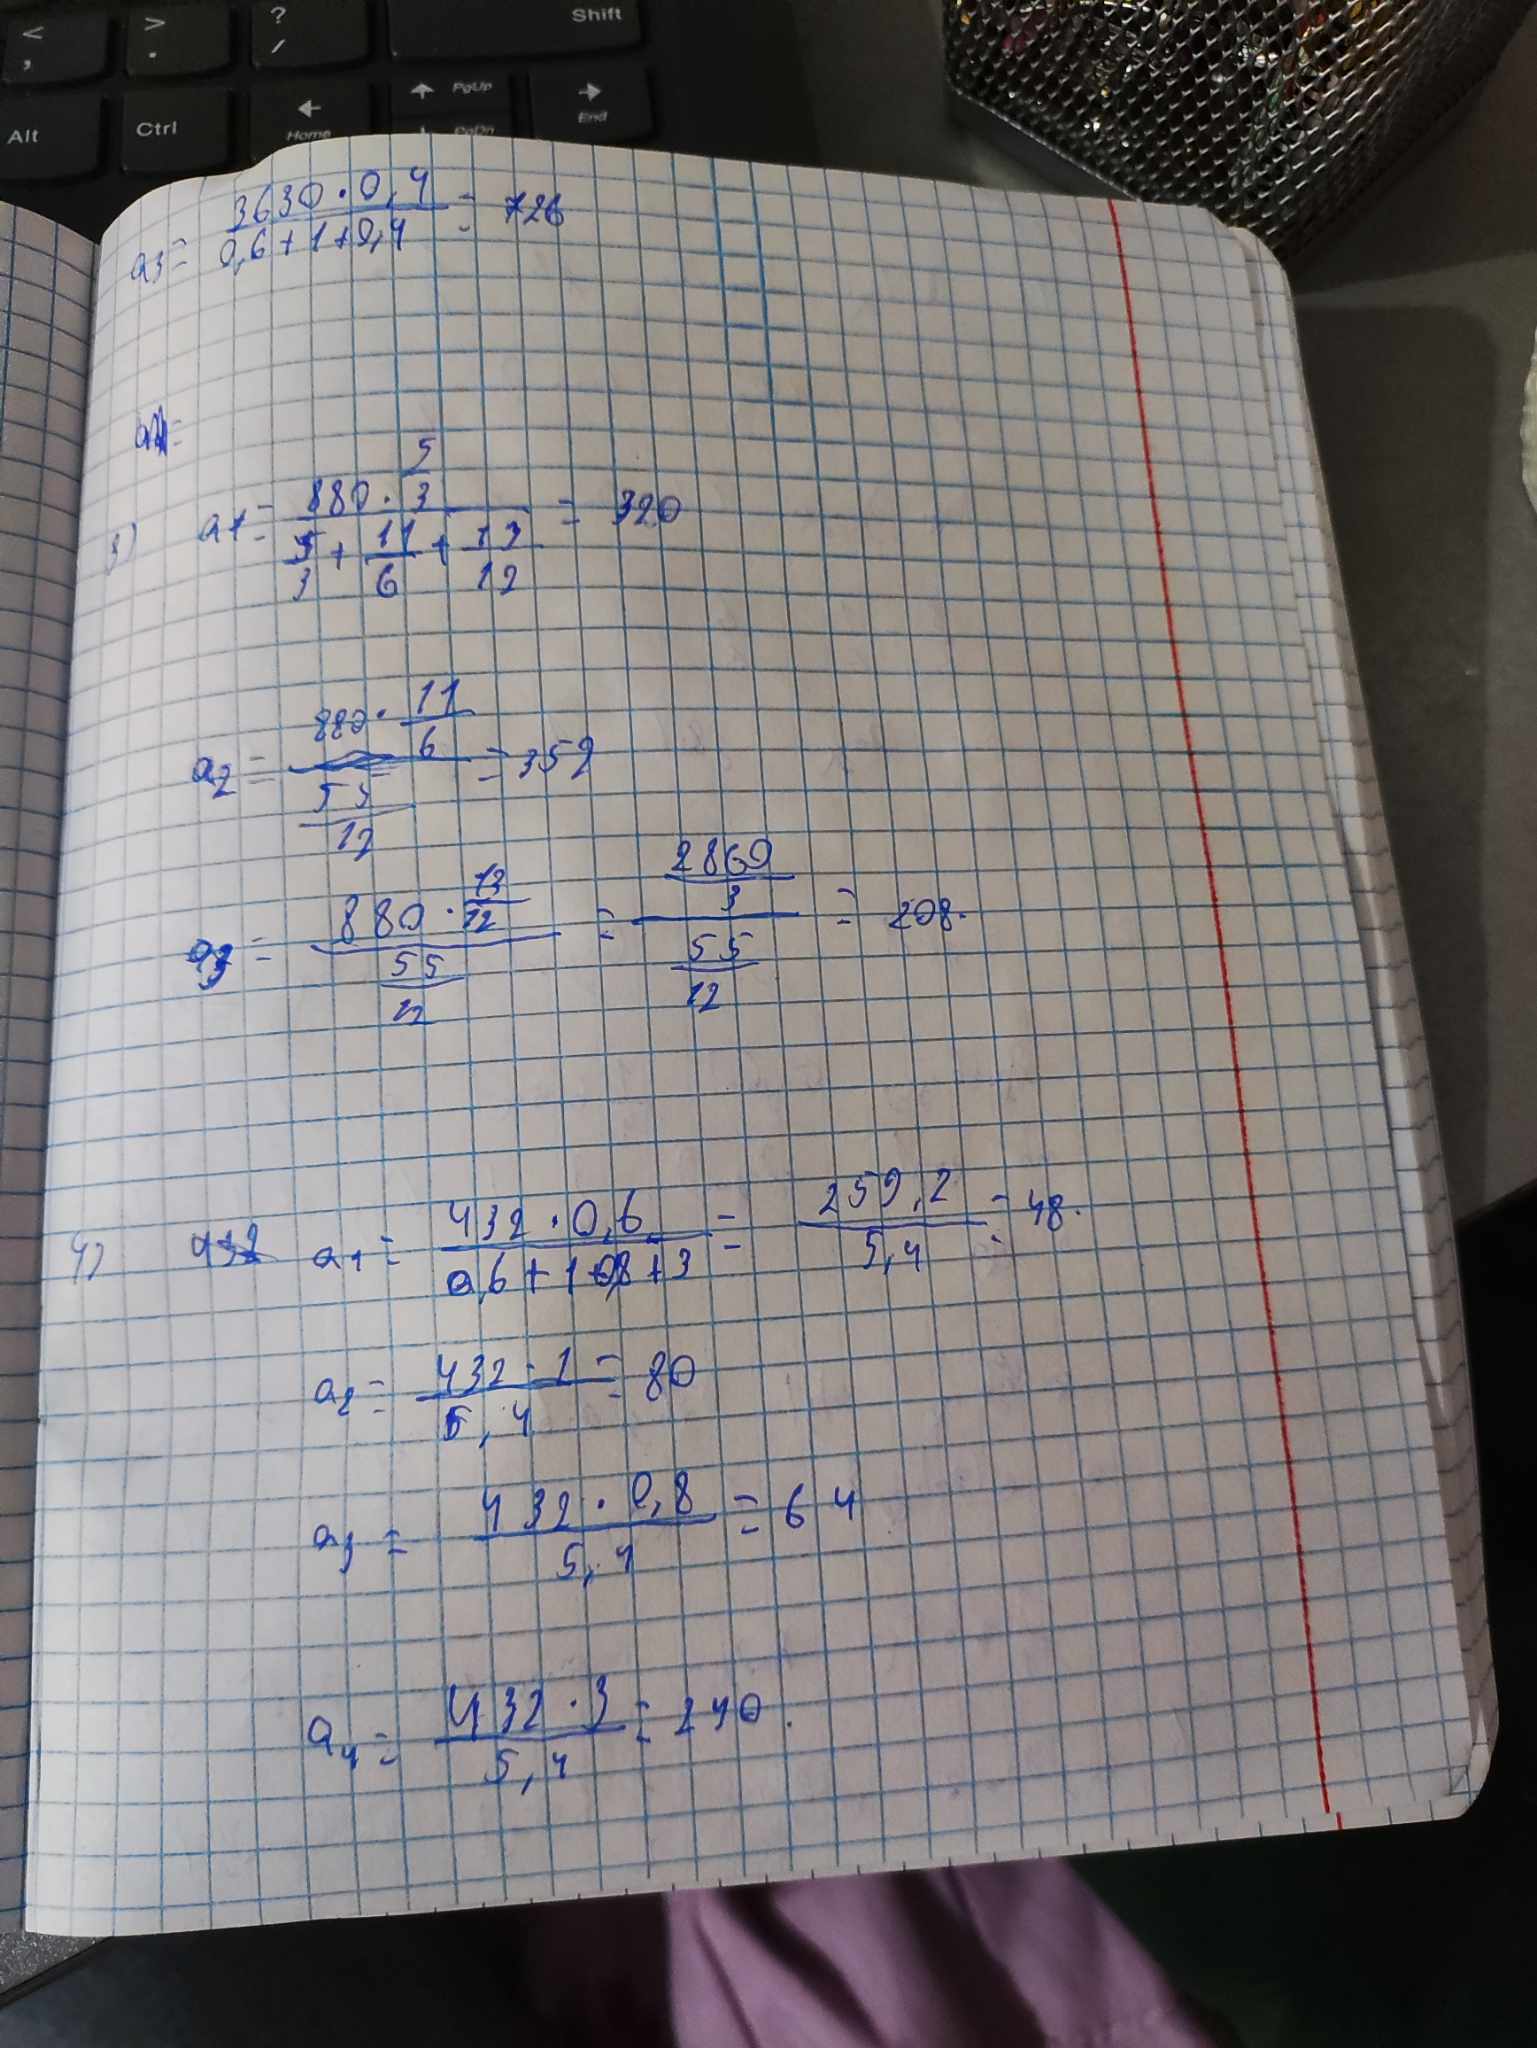 < , > . ? / Shift
Alt Ctrl ← Home ↑ PgUp PgDn → End
a3 = (3630 · 0,4)/(0,6 + 1 + 0,4) = 726
3) a1 = (880 · 5/3)/(5/3 + 11/6 + 13/12) = 320
a2 = (880 · 11/6)/(55/12) = 352
a3 = (880 · 13/12)/(55/12) = (2860/3)/(55/12) = 208.
4) 432 a1 = (432 · 0,6)/(0,6 + 1 + 0,8 + 3) = 259,2/5,4 = 48.
a2 = (432 · 1)/5,4 = 80
a3 = (432 · 0,8)/5,4 = 64
a4 = (432 · 3)/5,4 = 240.